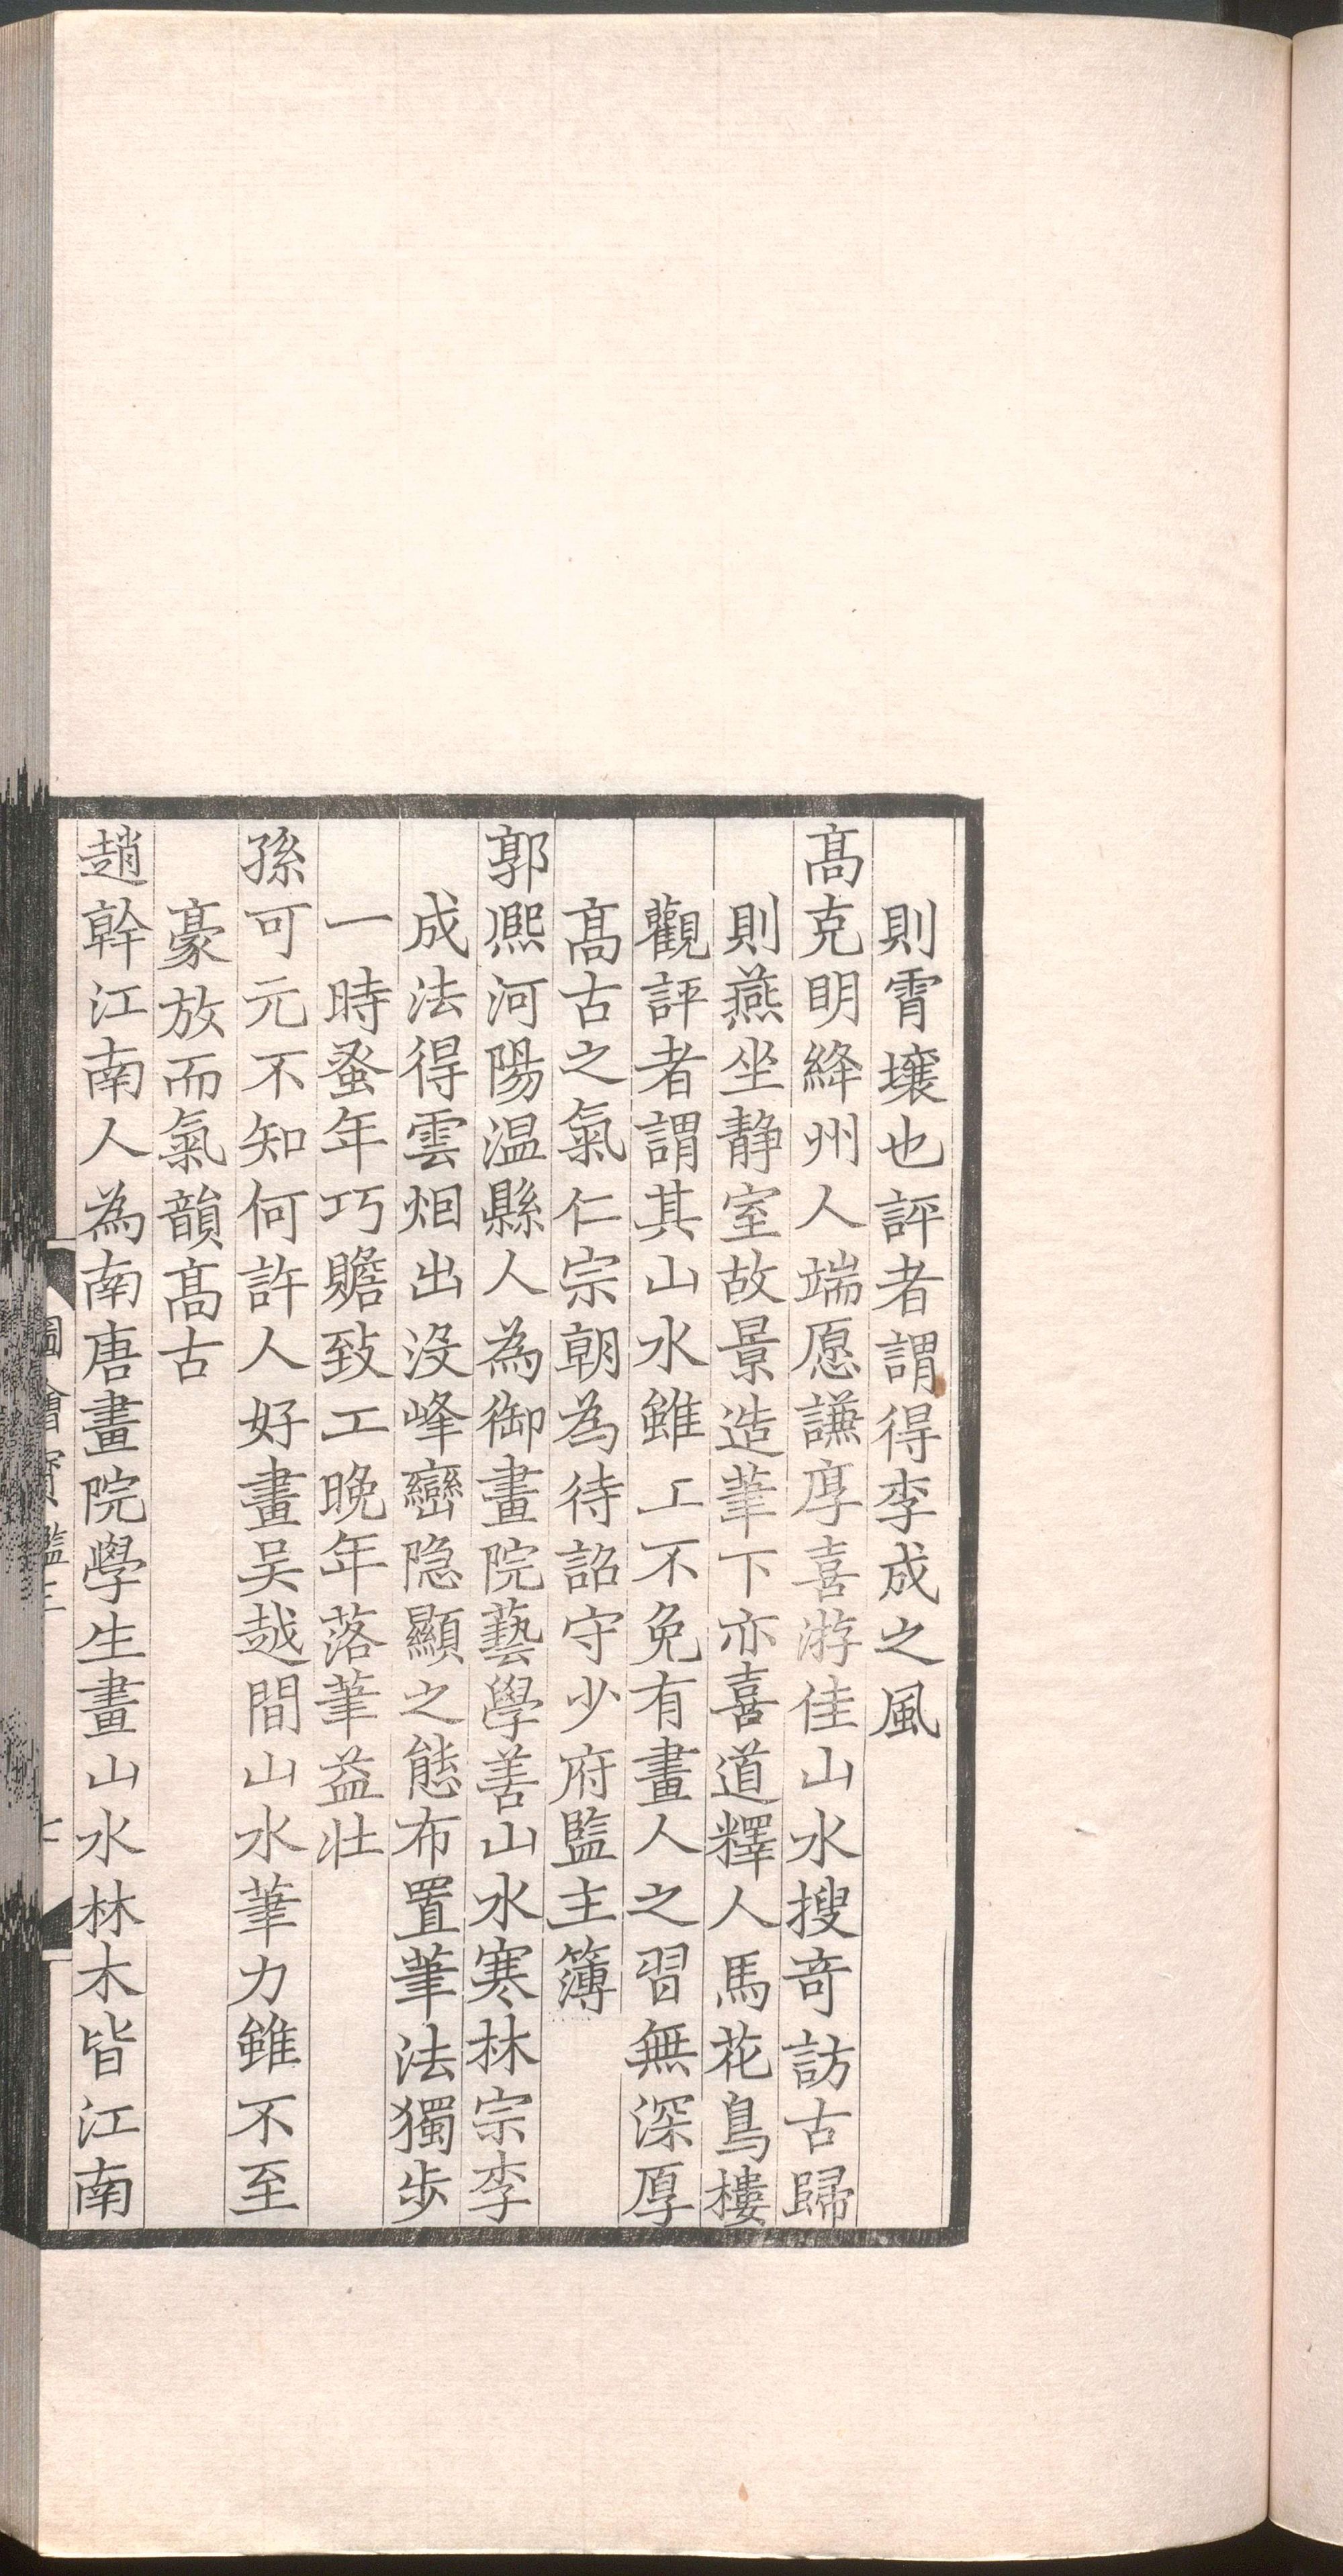 則霄壤也評者謂得李成之風
髙克明絳州人端愿謙厚喜游佳山水搜奇訪古歸
則燕坐静室故景造筆下亦喜道釋人馬花鳥樓
觀評者謂其山水雖工不免有畫人之習無深厚
髙古之氣仁宗朝為待詔守少府監主簿
郭熈河陽温縣人為御畫院藝學善山水寒林宗李
成法得雲烟出沒峰巒隐顯之態布置筆法獨步
一時蚤年巧贍致工晚年落筆益壯
孫可元不知何許人好畫吴越間山水筆力雖不至
豪放而氣韻髙古
趙幹江南人為南唐畫院學生畫山水林木皆江南
圖繪寶鑑三